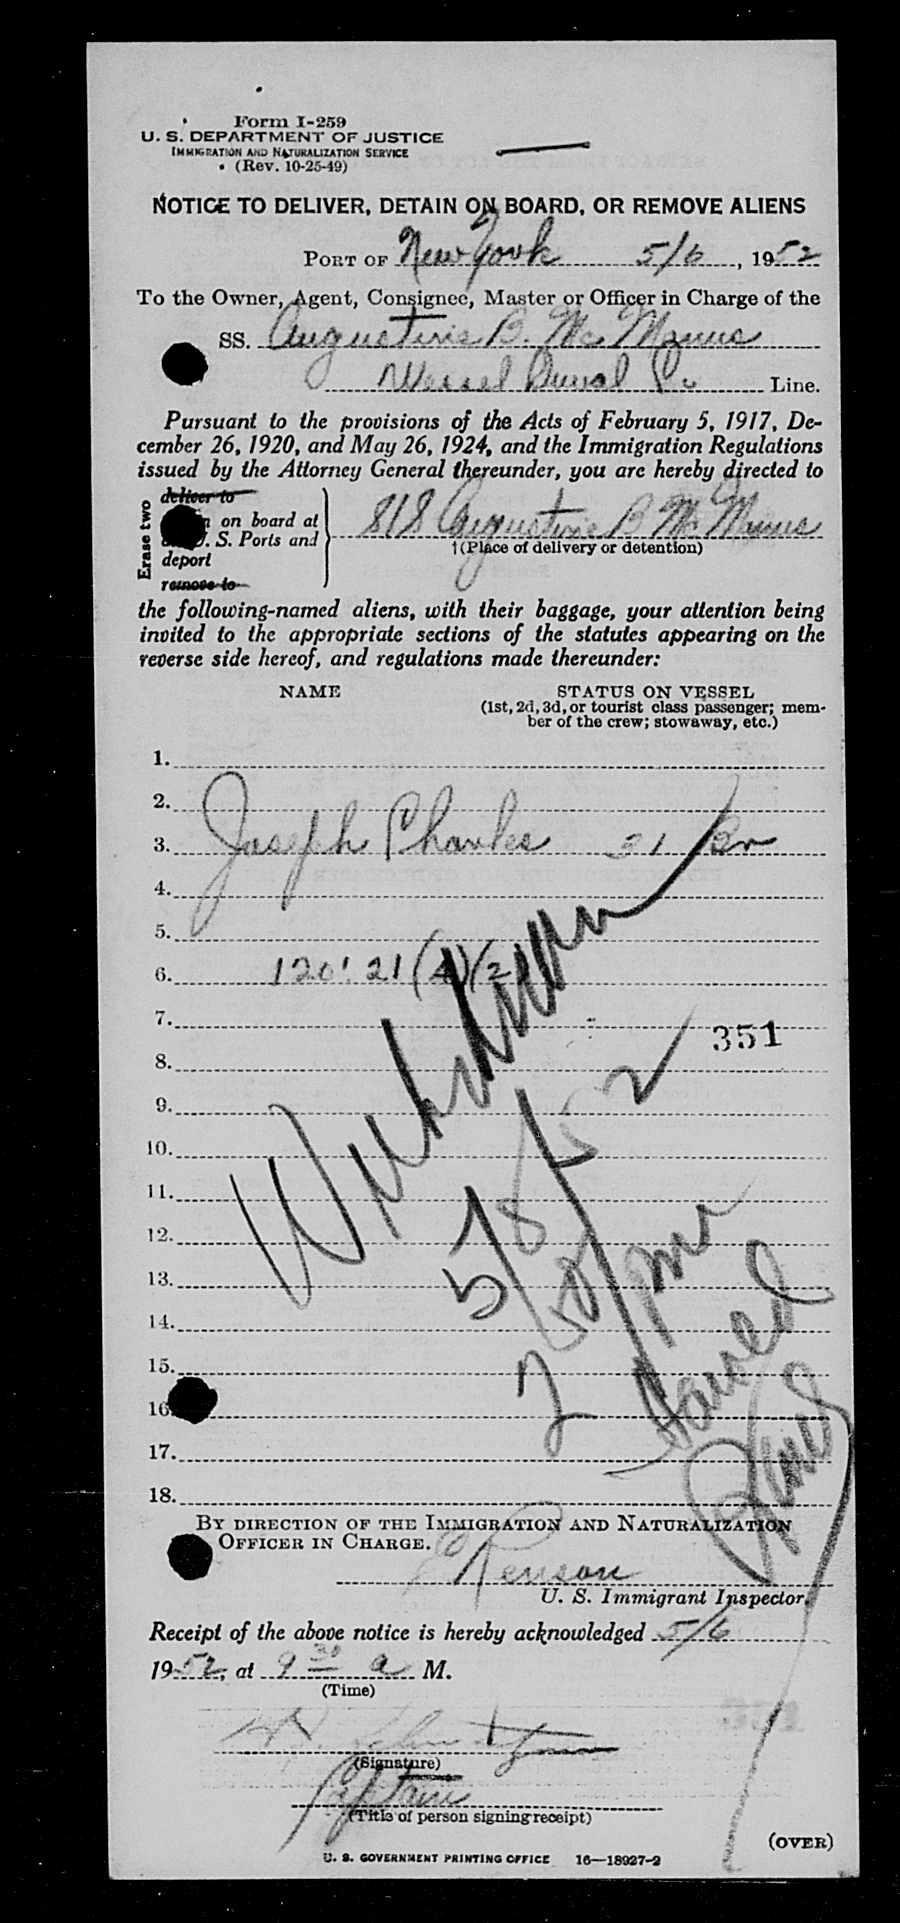 Form I-259
U. S. DEPARTMENT OF JUSTICE
IMMIGRATION AND NATURALIZATION SERVICE
(Rev. 10-25-49)
NOTICE TO DELIVER, DETAIN ON BOARD, OR REMOVE ALIENS
PORT OF New York 5/6, 1952
To the Owner, Agent, Consignee, Master or Officer in Charge of the
SS. Augustine B. Mc Manus
Wessel Duval Co Line.
Pursuant to the provisions of the Acts of February 5, 1917, De-
cember 26, 1920, and May 26, 1924, and the Immigration Regulations
issued by the Attorney General thereunder, you are hereby directed to
Erase two
deliver to
on board at
U. S. Ports and
deport
remove to
S/S Augustine B Mc Manus
†(Place of delivery or detention)
the following-named aliens, with their baggage, your attention being
invited to the appropriate sections of the statutes appearing on the
reverse side hereof, and regulations made thereunder:
NAME STATUS ON VESSEL
(1st, 2d, 3d, or tourist class passenger; mem-
ber of the crew; stowaway, etc.)
1.
2.
3. Joseph Charles 31 Br
4.
5.
6. 120.21 (A) (2
7. 351
8.
9.
10.
11.
12.
13.
14.
15.
16.
17.
18.
Withdrawn
5/8/52
pm
BY DIRECTION OF THE IMMIGRATION AND NATURALIZATION
OFFICER IN CHARGE.
U. S. Immigrant Inspector.
Receipt of the above notice is hereby acknowledged 5/6
1952, at 9 30 a M.
(Time)
(Signature)
Captain
(Title of person signing receipt)
(OVER)
U. S. GOVERNMENT PRINTING OFFICE 16—18927-2